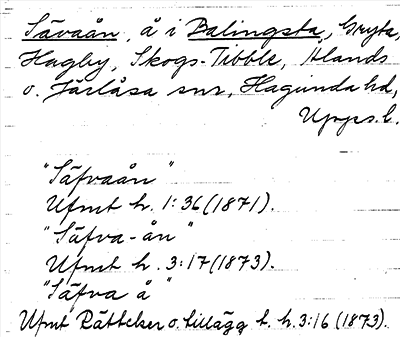 Sävaån, å i Balingsta, Gryta,
Hagby, Skogs-Tibble, Ålands
o. Järlåsa snr, Hagunda hd,
Upps. l.
"Säfvaån"
Ufmt h. 1:36 (1871).
"Säfva-ån"
Ufmt h. 3:17 (1873).
"Säfva å"
Ufmt Rättelser o. tillägg t. h. 3:16 (1873).